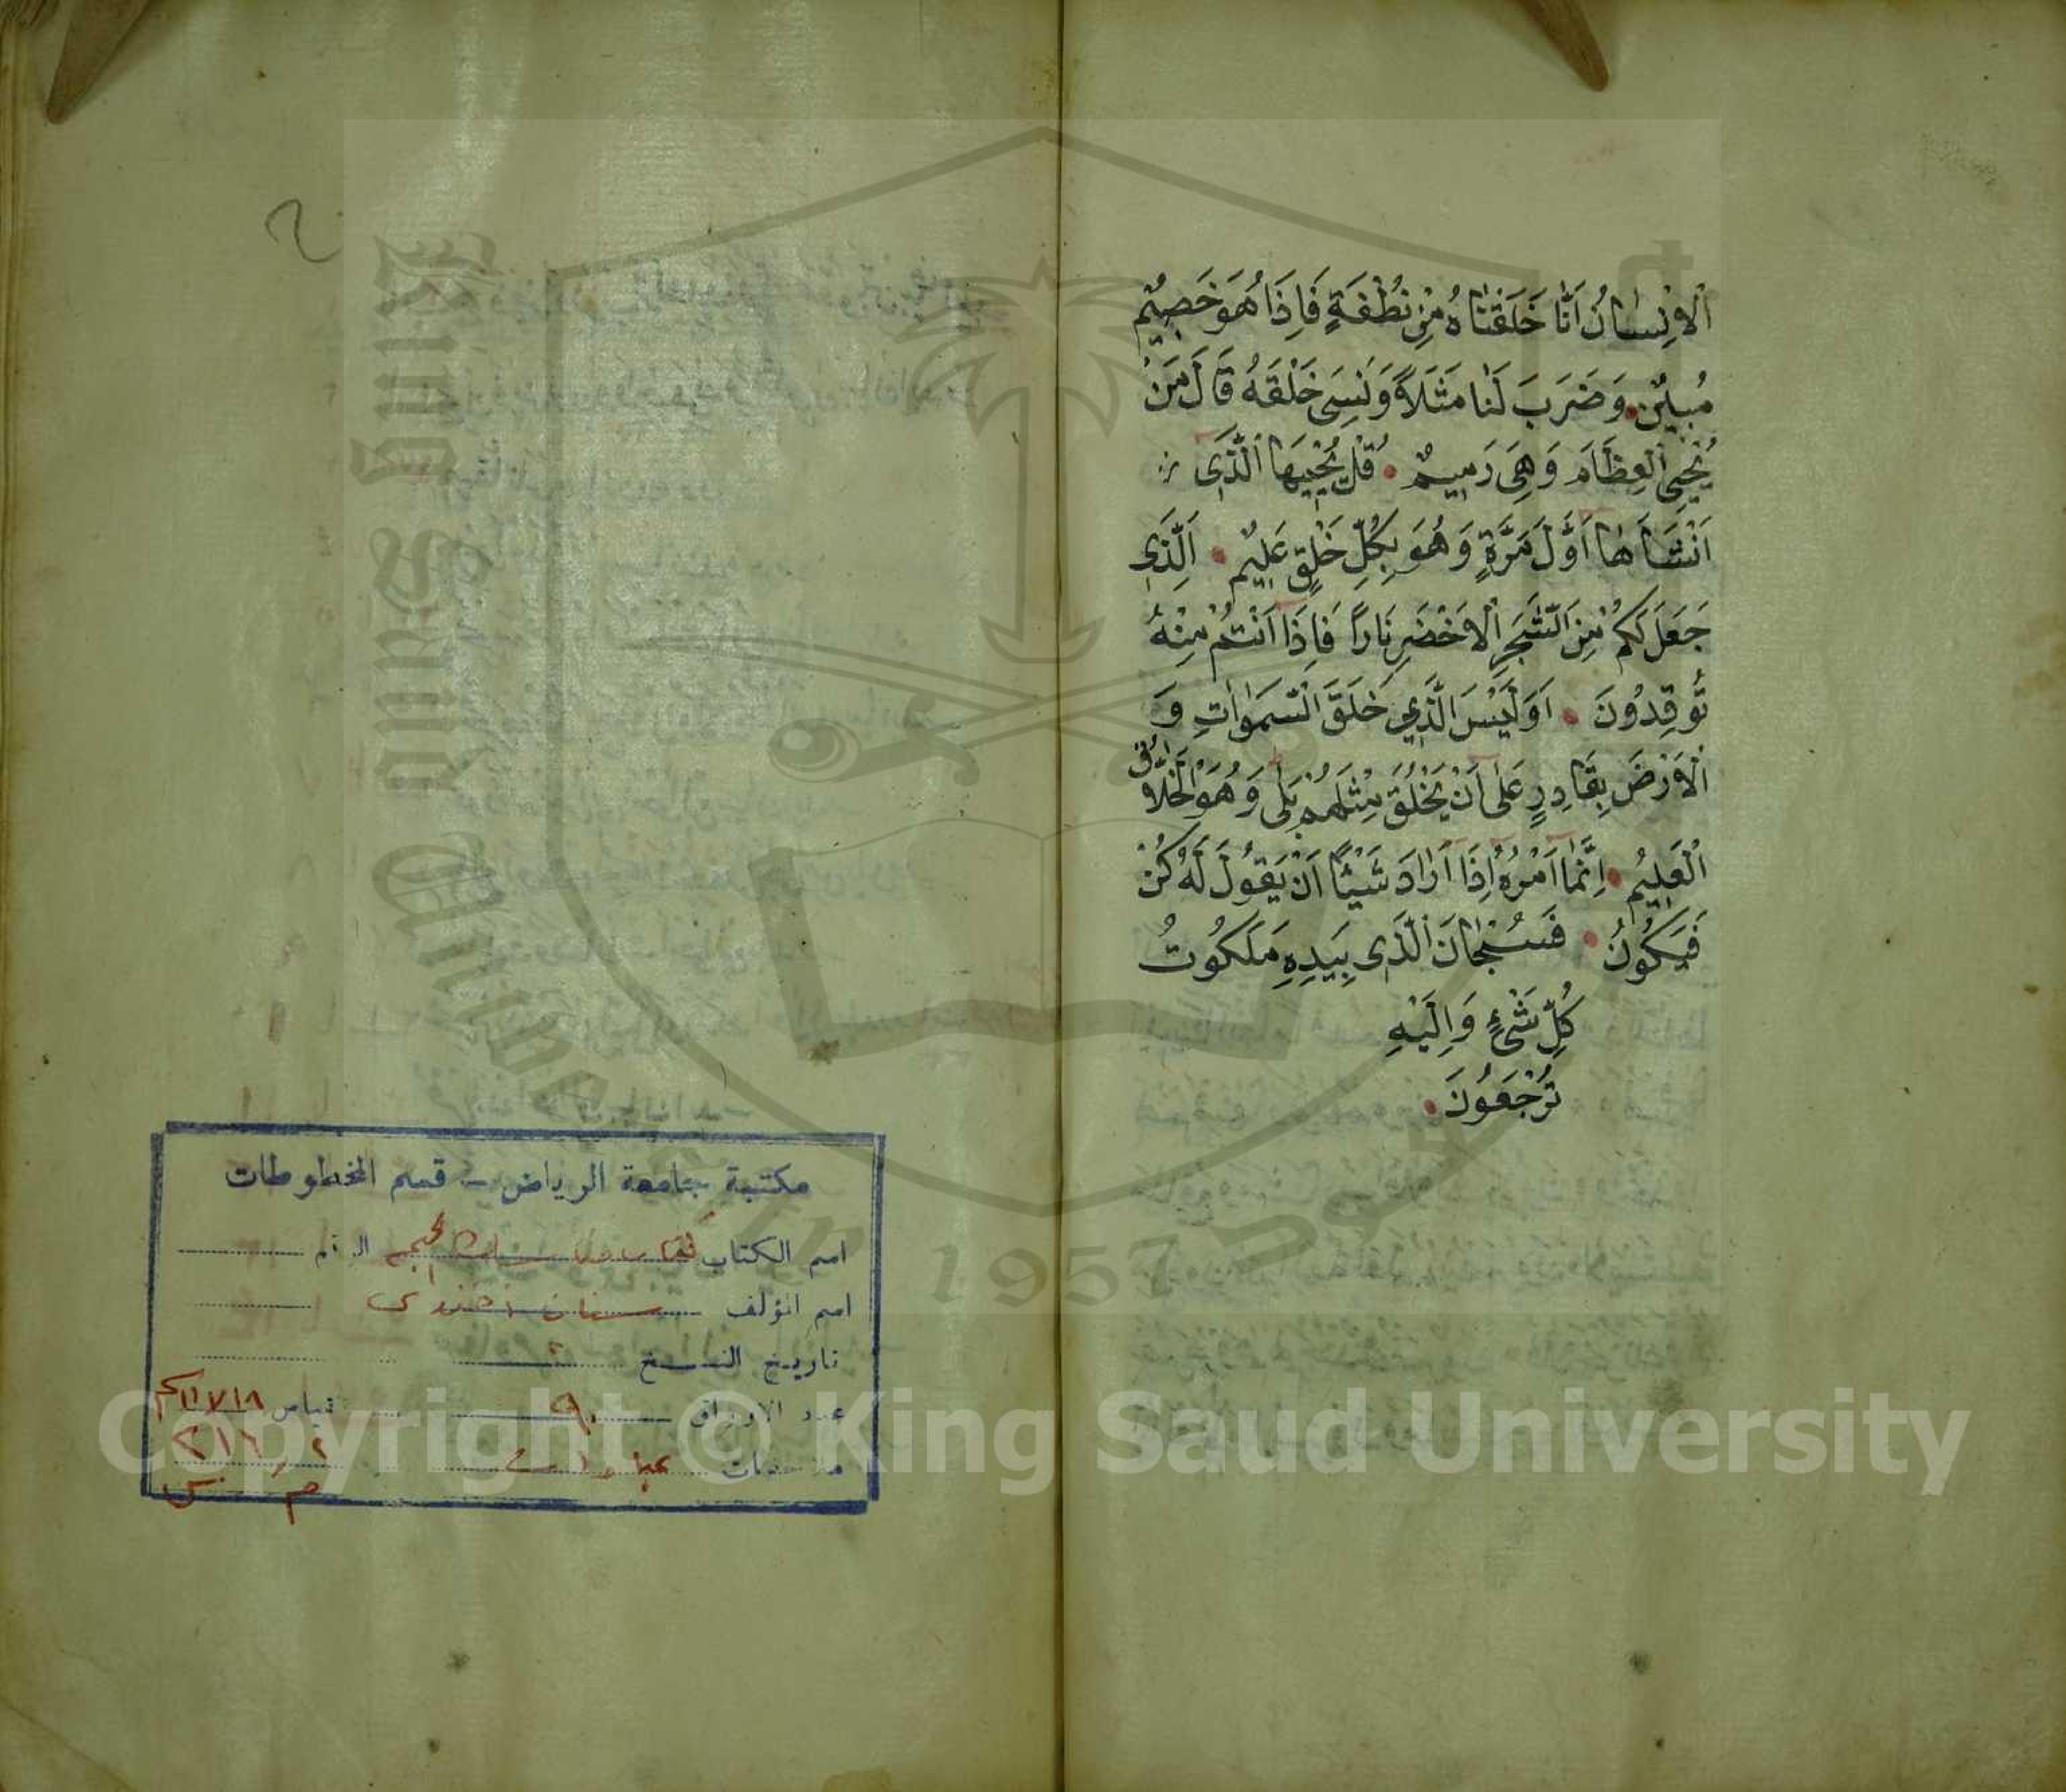 اَلْاِنْسَانُ اَنَّا خَلَقْنَاهُ مِنْ نُطْفَةٍ فَاِذَا هُوَ خَصِيْمٌ
مُبِيْنٌ. وَضَرَبَ لَنَا مَثَلاً وَنَسِىَ خَلْقَهُ قَالَ مَنْ
يُحْيِى الْعِظَامَ وَهِىَ رَمِيْمٌ. قُلْ يُحْيِيْهَا الَّذِى
اَنْشَاَهَا اَوَّلَ مَرَّةٍ وَهُوَ بِكُلِّ خَلْقٍ عَلِيْمٌ. اَلَّذِى
جَعَلَ لَكُمْ مِنَ الشَّجَرِ الْاَخْضَرِ نَاراً فَاِذَا اَنْتُمْ مِنْهُ
تُوْقِدُوْنَ. اَوَلَيْسَ الَّذِي خَلَقَ السَّمَوَاتِ وَ
الْاَرْضَ بِقَادِرٍ عَلَى اَنْ يَخْلُقَ مِثْلَهُمْ بَلَى وَهُوَ الْخَلَّاقُ
الْعَلِيْمُ. اِنَّمَا اَمْرُهُ اِذَا اَرَادَ شَيْئًا اَنْ يَقُوْلَ لَهُ كُنْ
فَيَكُوْنُ. فَسُبْحَانَ الَّذِى بِيَدِهِ مَلَكُوْتُ
كُلِّ شَىْءٍ وَاِلَيْهِ
تُرْجَعُوْنَ.
مكتبة جامعة الرياض - قسم المخطوطات
اسم الكتاب الرقم
اسم المؤلف سنان افندى
تاريخ النسخ ؟
عدد الاوراق ٩٠ قياس ١٨×١١ سم
ملاحظات عبادات ٢١٦
King Saud University
1957
Copyright © King Saud University